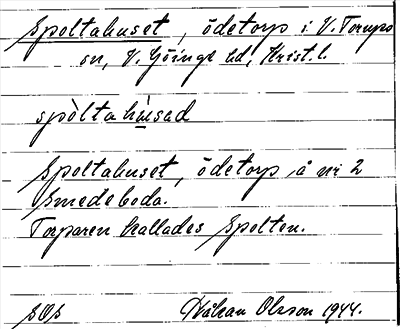 Spoltahuset, ödetorp i V. Torups
sn, V. Göinge hd, Krist. l.
spòltahùsad
Spoltahuset, ödetorp å nr 2
Smedeboda.
Torparen kallades Spolten.
SOS Håkan Olsson 1944.